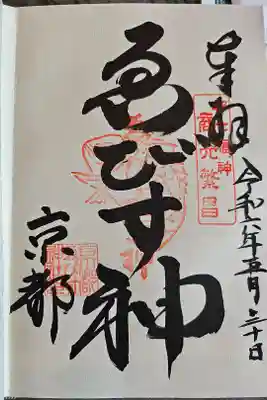 奉拝
商売繁昌
ゑびす神
令和六年五月三十日
京都